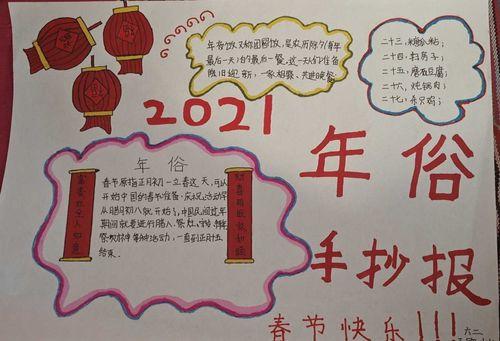 年夜饭又称团圆饭,是农历除夕(每年
最后一天)的最后一餐,这一天人们准备
除旧迎新,一家相聚,共进晚餐
二十三,糖瓜粘;
二十四,扫房子;
二十五,磨豆腐;
二十六,炖锅肉;
二十七,杀只鸡;
2021
年俗
手抄报
年俗
春节原指正月初一立春这天,可以
开始中国的春节准备,庆祝活动早
从腊月初八就开始,中国民间过年
期间就要进行腊八、祭灶、守岁、
祭祀财神等活动,一直到正月十五
结束.
春节快乐!!!
六二